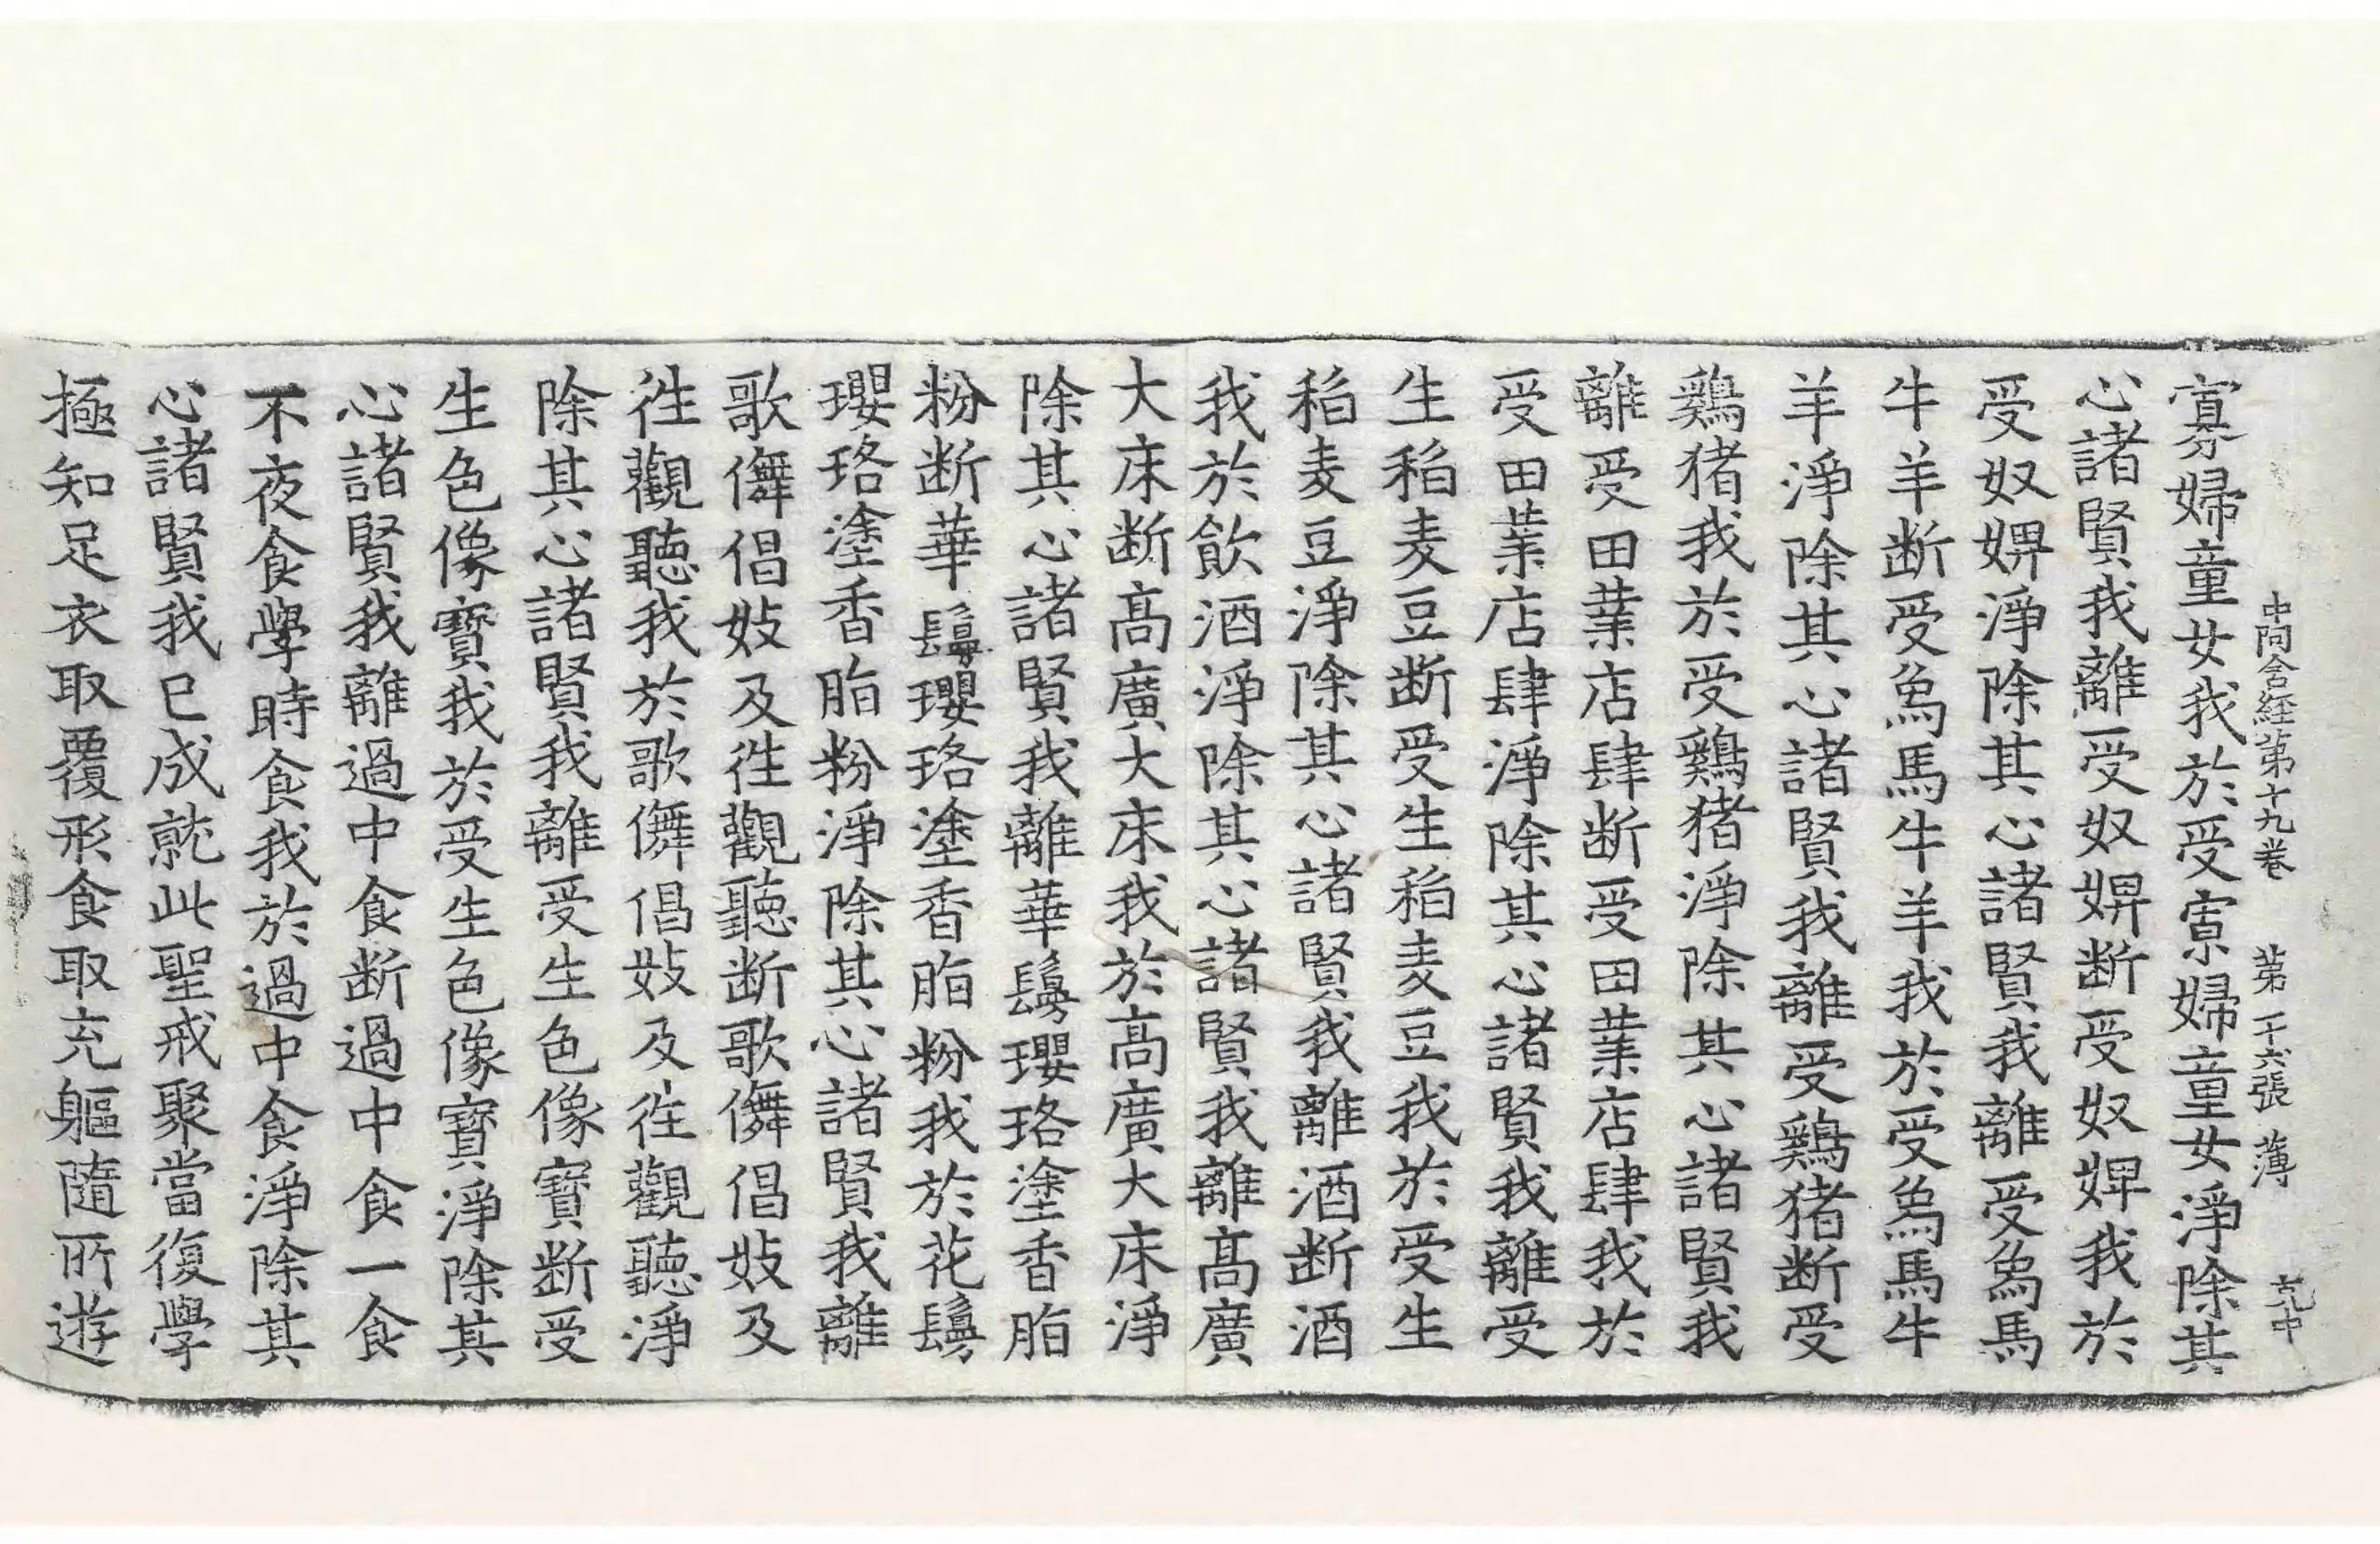 中阿含経第十九卷 第二十六張 薄
寡婦童女我於受寡婦童女淨除其
心諸賢我離受奴婢断受奴婢我於
受奴婢淨除其心諸賢我離受象馬
牛羊断受象馬牛羊我於受象馬牛
羊淨除其心諸賢我離受鷄猪断受
鷄猪我於受鷄猪淨除其心諸賢我
離受田業店肆断受田業店肆我於
受田業店肆淨除其心諸賢我離受
生稻麦豆断受生稻麦豆我於受生
稻麦豆淨除其心諸賢我離酒断酒
我於飲酒淨除其心諸賢我離髙廣
大床断髙廣大床我於髙廣大床淨
除其心諸賢我離華鬘瓔珞塗香脂
粉断華鬘瓔珞塗香脂粉我於花鬘
瓔珞塗香脂粉淨除其心諸賢我離
歌儛倡妓及徃觀聽断歌儛倡妓及
徃觀聽我於歌儛倡妓及徃觀聽淨
除其心諸賢我離受生色像寶断受
生色像寶我於受生色像寶淨除其
心諸賢我離過中食断過中食一食
不夜食學時食我於過中食淨除其
心諸賢我已成就此聖戒聚當復學
極知足衣取覆形食取充軀隨所遊